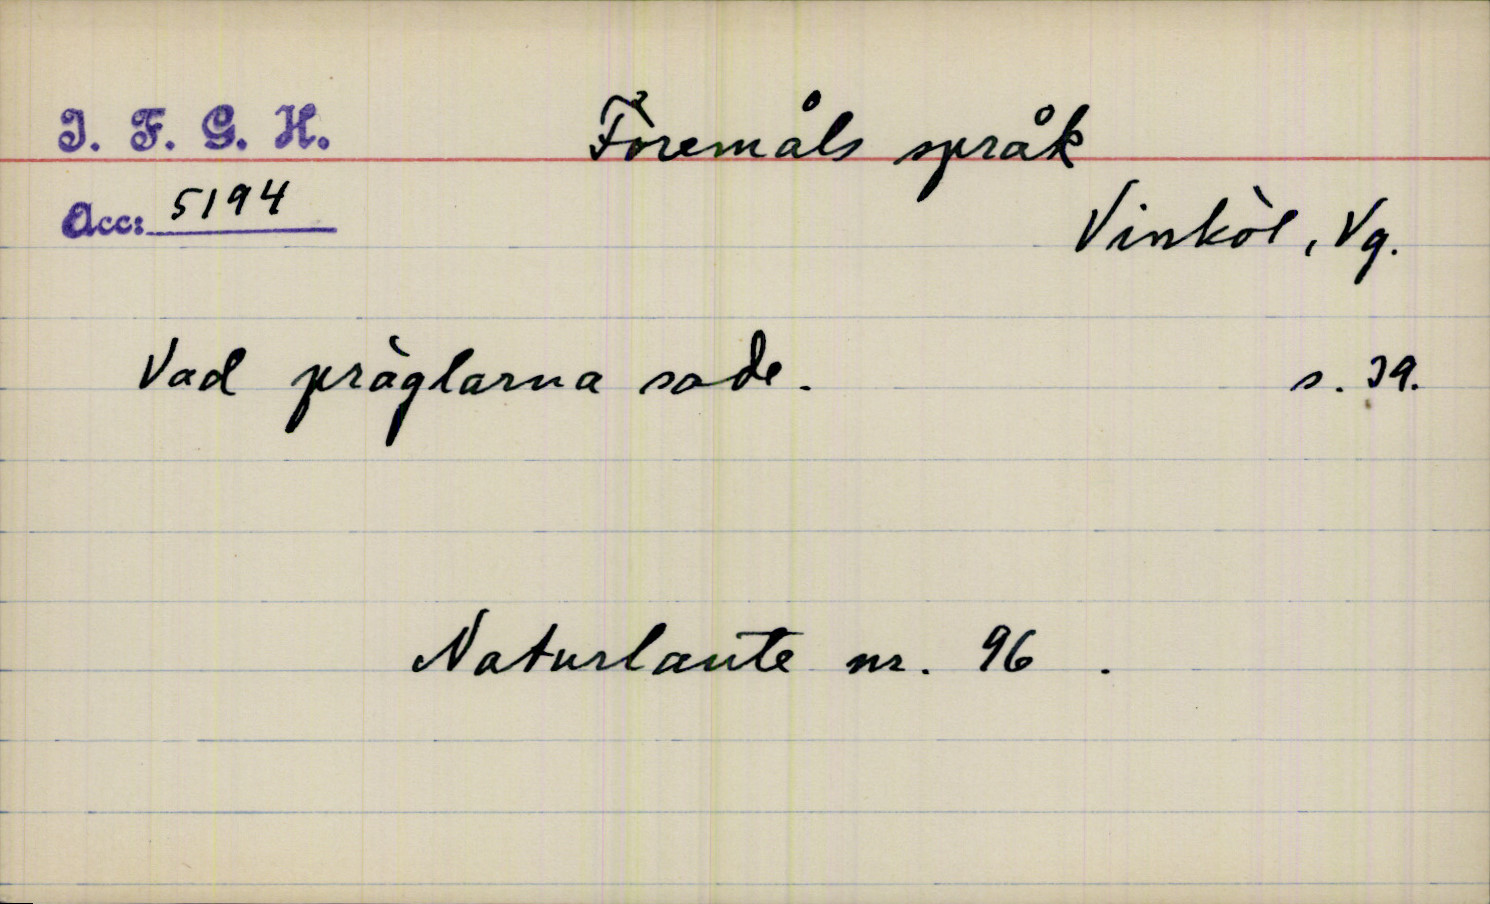 I. F. G. H.
Föremåls språk
Acc: 5194
Vinköl, Vg.
Vad präglarna sade. s. 39.
Naturlaute nr. 96.